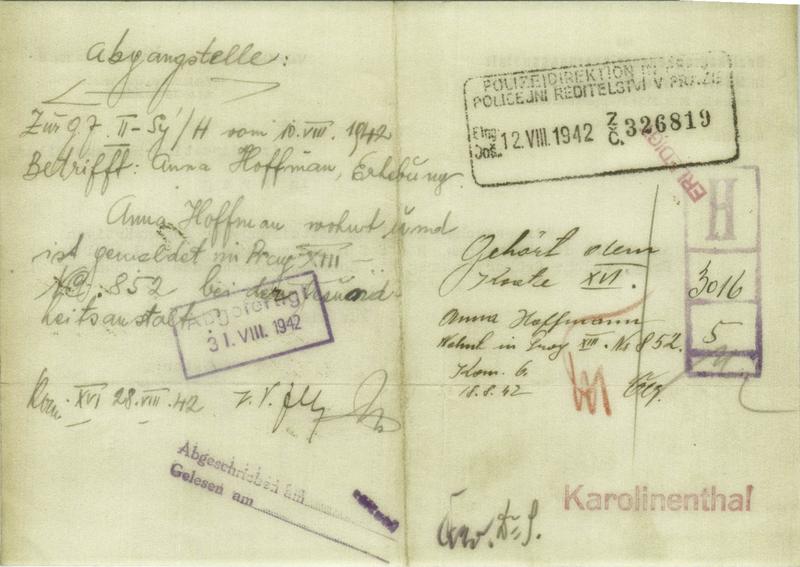 Abgangstelle:
Zur G.Z. II-Sy/H vom 10.VIII.1942
Betrifft: Anna Hoffman, Erhebung.
Anna Hoffman wohnt und
ist gemeldet in Prag XIII -
No. 852 bei der Gesund-
heitsanstalt.
Abgefertigt
31. VIII. 1942
Kom. XVI 28.VIII.42 i.V.
Abgeschrieben am
Gelesen am
POLIZEIDIREKTION IN
POLICEJNÍ ŘEDITELSTVÍ V PRAZE
Eing.
Doš. 12. VIII. 1942 Z Č. 326819
ERLEDIGT
H
3016
5
Gehört dem
XVI.
Anna Hoffmann
wohnt in Prag XIII. No 852.
Kom. 6.
18.8.42
Karolinenthal